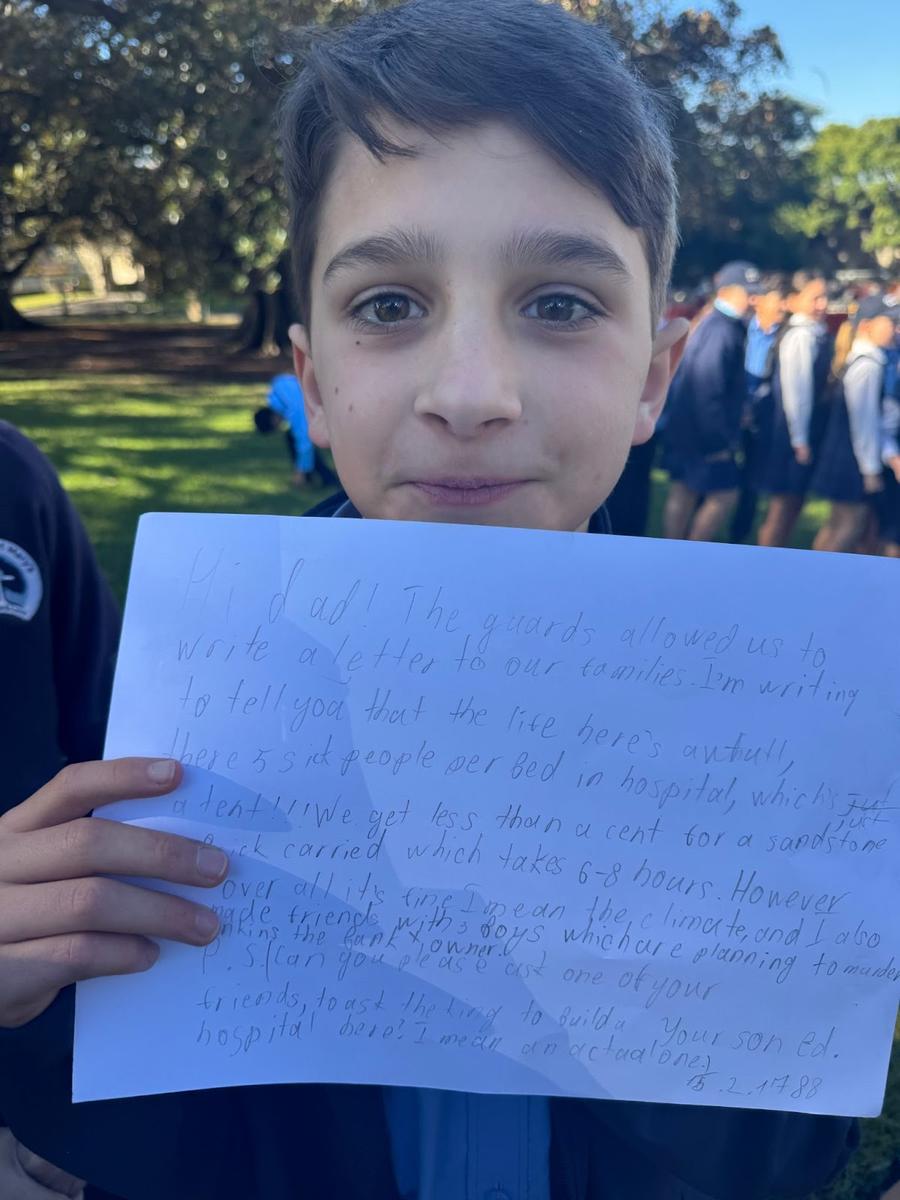 Mary's
Hi dad! The guards allowed us to
write a letter to our families. I'm writing
to tell you that the life here's awfull,
there 5 sick people per Bed in hospital, which's just
a tent!!! We get less than a cent for a sandstone
carried which takes 6-8 hours. However
over all it's fine I mean the climate, and I also
made friends with 3 Boys which are planning to murder
the owner.
P.S.(Can you please ask one of your
friends, to ask the king to Build a
hospital here? I mean an actual one.)
Your son Ed.
.2.1788